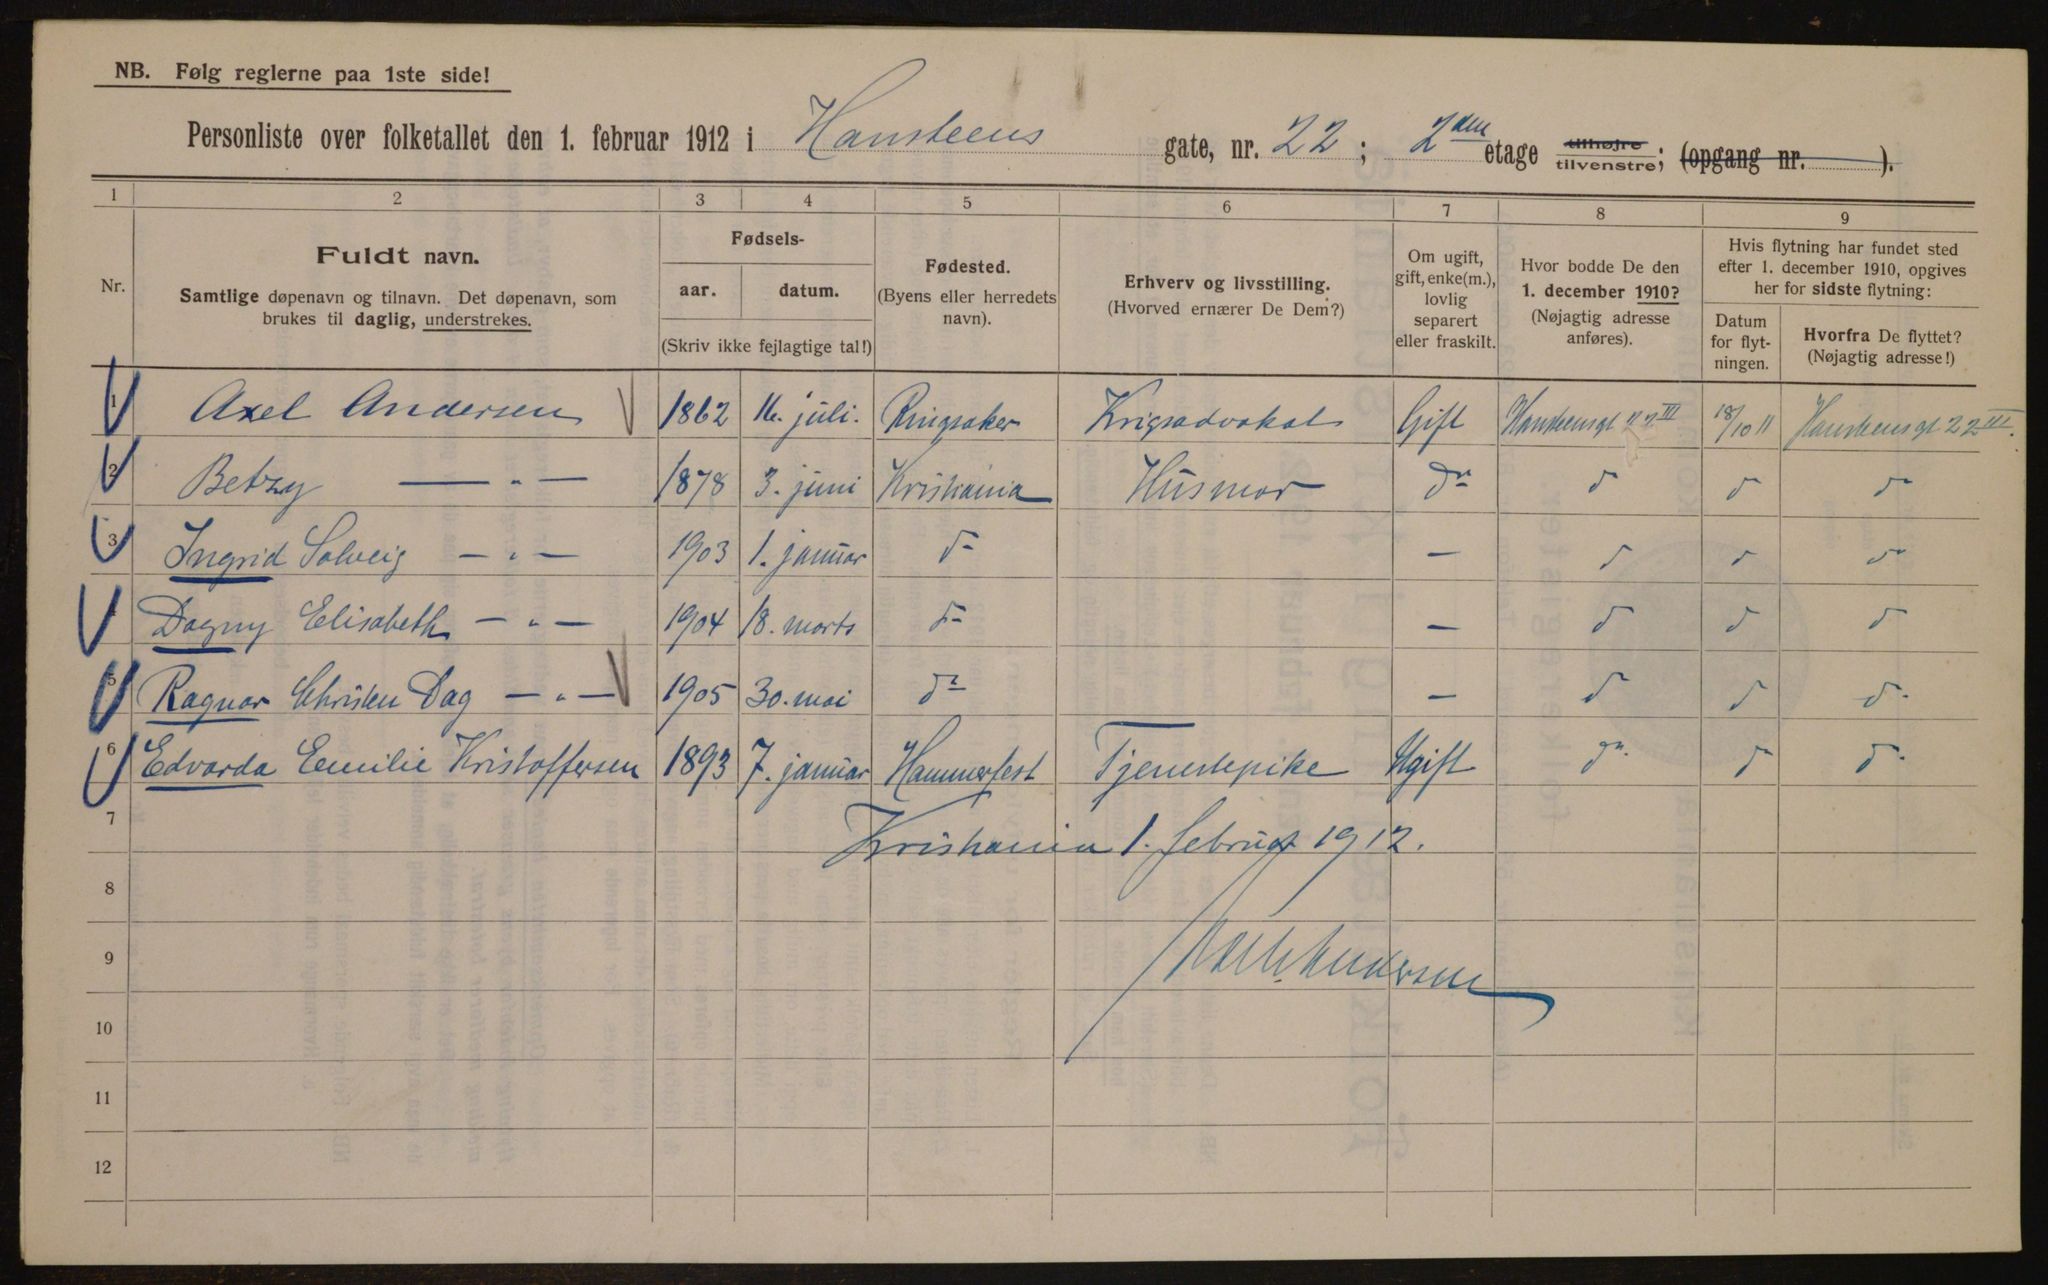 NB. Følg reglerne paa 1ste side!
Personliste over folketallet den 1. februar 1912 i Hansteens gate, nr. 22; 2den etage tilhøjre tilvenstre; (opgang nr. ).
1 2 3 4 5 6 7 8 9
Nr.
Fuldt navn.
Samtlige døpenavn og tilnavn. Det døpenavn, som
brukes til daglig, understrekes.
Fødsels-
aar. datum.
(Skriv ikke fejlagtige tal!)
Fødested.
(Byens eller herredets
navn).
Erhverv og livsstilling.
(Hvorved ernærer De Dem?)
Om ugift,
gift, enke(m.),
lovlig
separert
eller fraskilt.
Hvor bodde De den
1. december 1910?
(Nøjagtig adresse
anføres).
Hvis flytning har fundet sted
efter 1. december 1910, opgives
her for sidste flytning:
Datum
for flyt-
ningen.
Hvorfra De flyttet?
(Nøjagtig adresse!)
1 Axel Andersen 1862 16. juli. Ringsaker Krigsadvokat Gift Hansteensgt 22 III 18/10 11 Hansteensgt 22 III.
2 Betzy — " — 1878 3. juni Kristiania Husmor do d d d
3 Ingrid Solveig — " — 1903 1. januar d — d d d
4 Dagny Elisabeth — " — 1904 18. marts d — d d d
5 Ragnar Christen Dag — " — 1905 30. mai do — d d d
6 Edvarda Emilie Kristoffersen 1893 7. januar Hammerfest Tjenestepike Ugift do d d
7 Kristiania 1. februar 1912.
8
9 Andersen
10
11
12